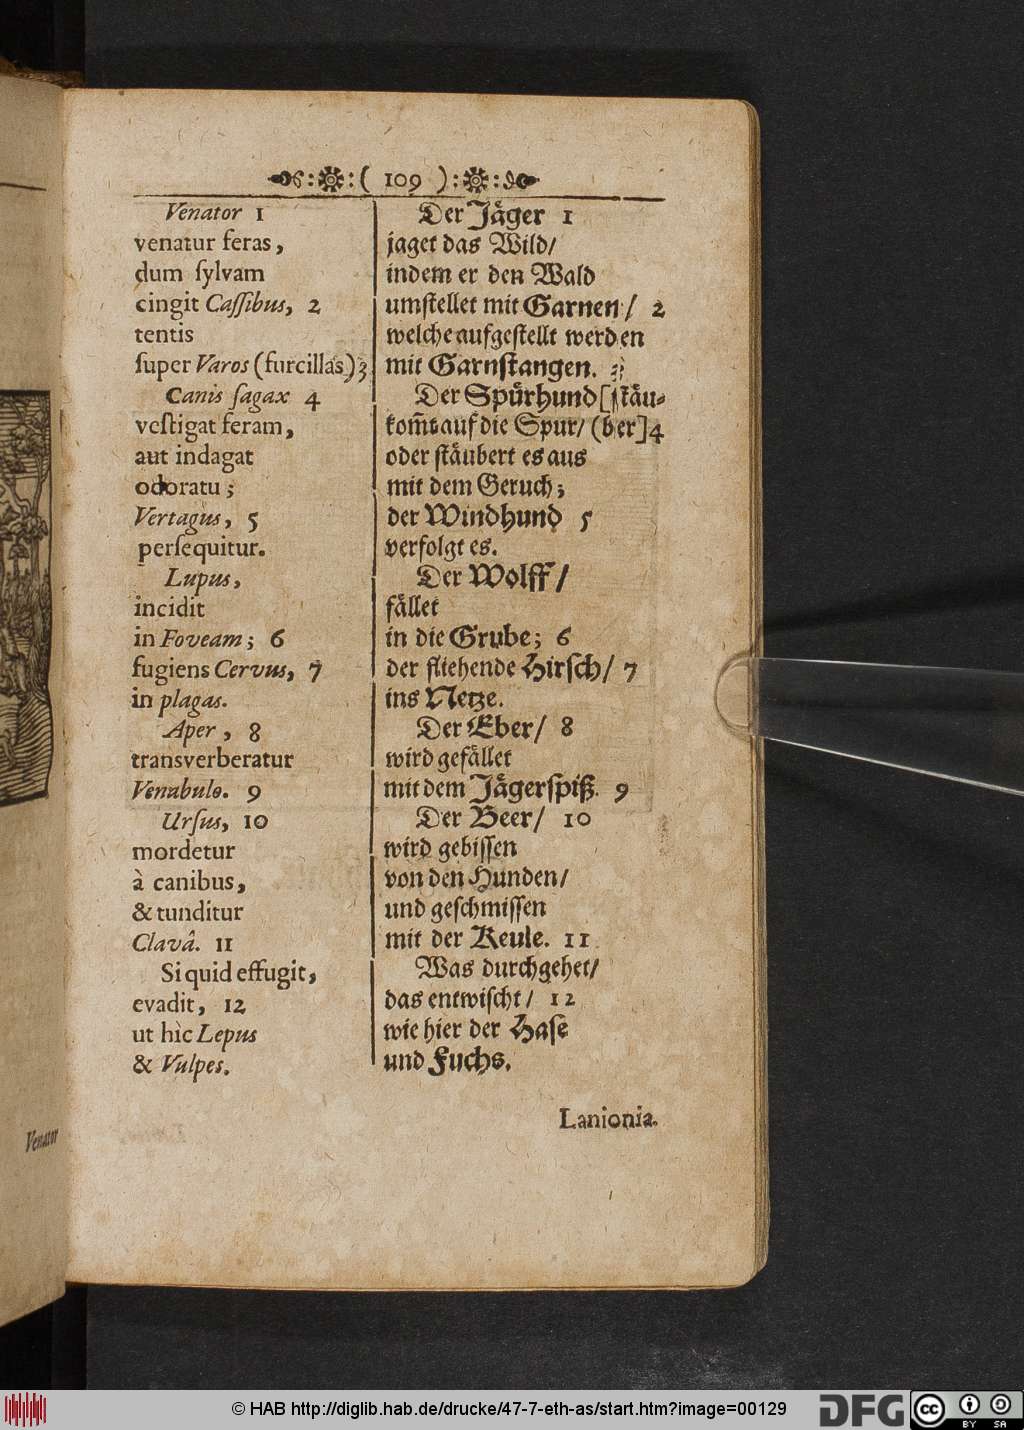 ( 109 )
Venator 1
venatur feras,
dum sylvam
cingit Cassibus, 2
tentis
super Varos (furcillas) 3
Canis sagax 4
vestigat feram,
aut indagat
odoratu;
Vertagus, 5
persequitur.
Lupus,
incidit
in Foveam; 6
fugiens Cervus, 7
in plagas.
Aper, 8
transverberatur
Venabulo. 9
Ursus, 10
mordetur
à canibus,
& tunditur
Clavâ. 11
Si quid effugit,
evadit, 12
ut hìc Lepus
& Vulpes.
Der Jäger 1
jaget das Wild/
indem er den Wald
umstellet mit Garnen/ 2
welche aufgestellt werden
mit Garnstangen. 3
Der Spürhund [stäu-
kom̃t auf die Spur/ (ber] 4
oder stäubert es aus
mit dem Geruch;
der Windhund 5
verfolgt es.
Der Wolff/
fället
in die Grube; 6
der fliehende Hirsch/ 7
ins Netze.
Der Eber/ 8
wird gefället
mit dem Jägerspiß. 9
Der Beer/ 10
wird gebissen
von den Hunden/
und geschmissen
mit der Keule. 11
Was durchgehet/
das entwischt/ 12
wie hier der Hase
und Fuchs.
Lanionia.
Venator
© HAB http://diglib.hab.de/drucke/47-7-eth-as/start.htm?image=00129
DFG
cc
BY SA